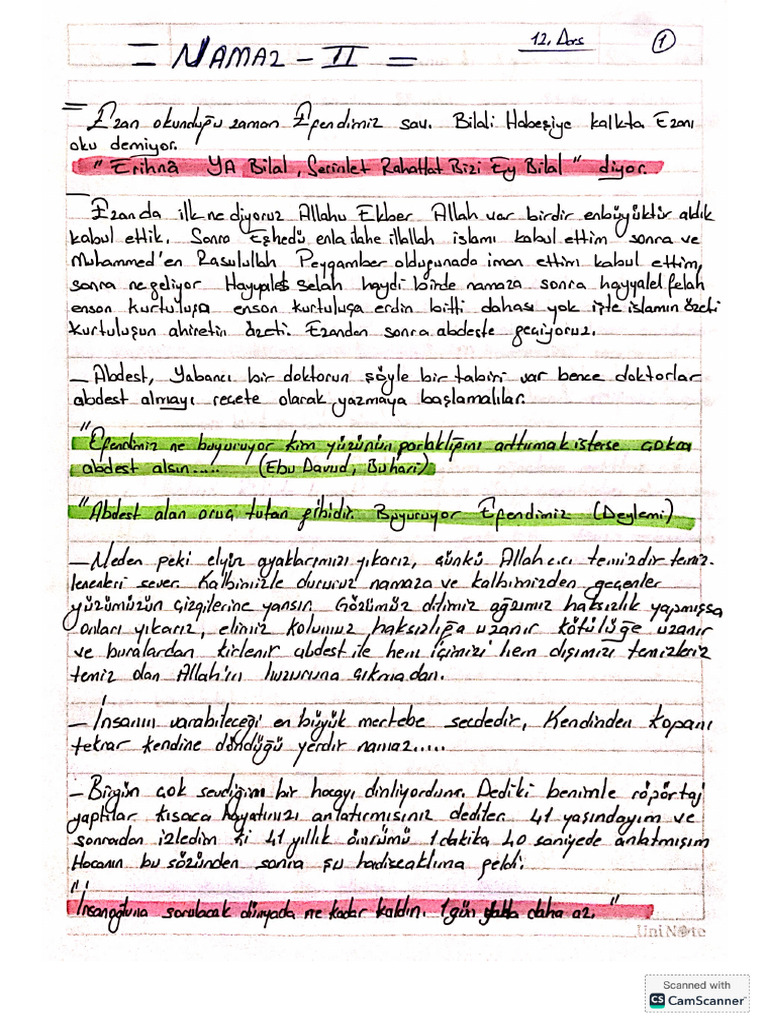 = NAMAZ - II =
12. Ders
1
= Ezan okunduğu zaman Efendimiz sav. Bilali Habeşiye kalkta Ezanı
oku demiyor.
" Erihnâ YA Bilal, Serinlet Rahatlat Bizi Ey Bilal " diyor.
– Ezanda ilk ne diyoruz Allahu Ekber Allah var birdir enbüyüktür aldık
kabul ettik. Sonra Eşhedü enla ilahe illallah islamı kabul ettim sonra ve
Muhammed'en Rasulullah Peygamber olduğunada iman ettim kabul ettim,
sonra ne geliyor Hayyales selah haydi birde namaza sonra hayyalel felah
enson kurtuluşa enson kurtuluşa erdin bitti dahası yok işte islamın özeti
kurtuluşun ahiretin özeti. Ezandan sonra abdeste geçiyoruz.
– Abdest, Yabancı bir doktorun şöyle bir tabiri var bence doktorlar
abdest almayı reçete olarak yazmaya başlamalılar.
"Efendimiz ne buyuruyor kim yüzünün parlaklığını arttırmak isterse çokca
abdest alsın..... (Ebu Davud, Buhari)
"Abdest alan oruç tutan gibidir. Buyuruyor Efendimiz (Deylemi)
– Neden peki elyüz ayaklarımızı yıkarız, çünkü Allah c.c temizdir temiz-
lenenleri sever. Kalbimizle dururuz namaza ve kalbimizden geçenler
yüzümüzün çizgilerine yansır. Gözümüz dilimiz ağzımız haksızlık yapmışsa
onları yıkarız, elimiz kolumuz haksızlığa uzanır kötülüğe uzanır
ve buralardan kirlenir abdest ile hem içimizi hem dışımızı temizleriz
temiz olan Allah'ın huzuruna çıkmadan.
– İnsanın varabileceği en büyük mertebe secdedir, Kendinden kopanı
tekrar kendine döndüğü yerdir namaz.....
– Bizgün çok sevdiğim bir hocayı dinliyordum. Dediki benimle röportaj
yaptılar kısaca hayatınızı anlatırmısınız dediler. 41 yaşındayım ve
sonradan izledim ki 41 yıllık ömrümü 1 dakika 40 saniyede anlatmışım
Hocanın bu sözünden sonra şu hadisceaklıma geldi.
"İnsanoğluna sorulacak dünyada ne kadar kaldın. 1 gün daha az. "
UniNote
Scanned with
CS CamScanner